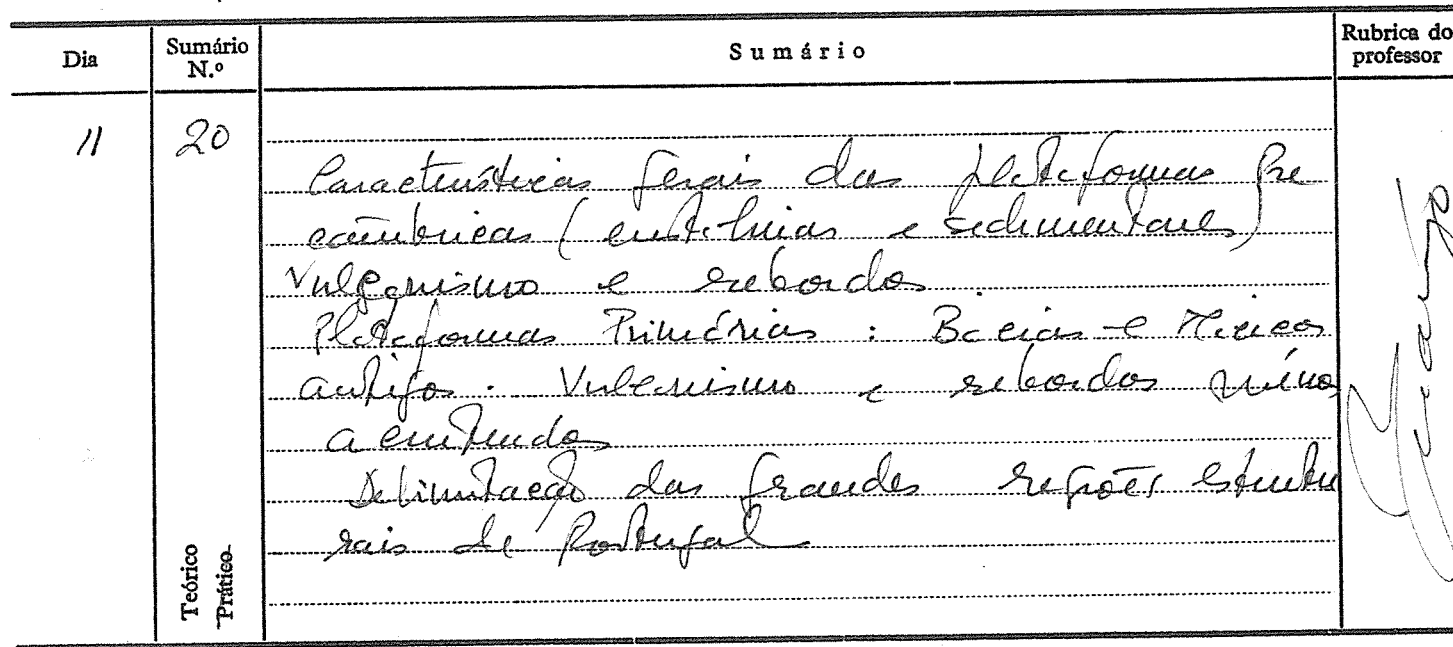 Dia
Sumário N.º
Sumário
Rubrica do professor
11
20
Características gerais das plataformas Pre
câmbricas (cristalinas e sedimentares)
Vulcanismo e rebordos.
Plataformas Primárias : Bacias e Maciços
antigos. Vulcanismo e rebordos menos
acentuados
Delimitação das grandes regiões estrutu
rais de Portugal
Teórico
Prático